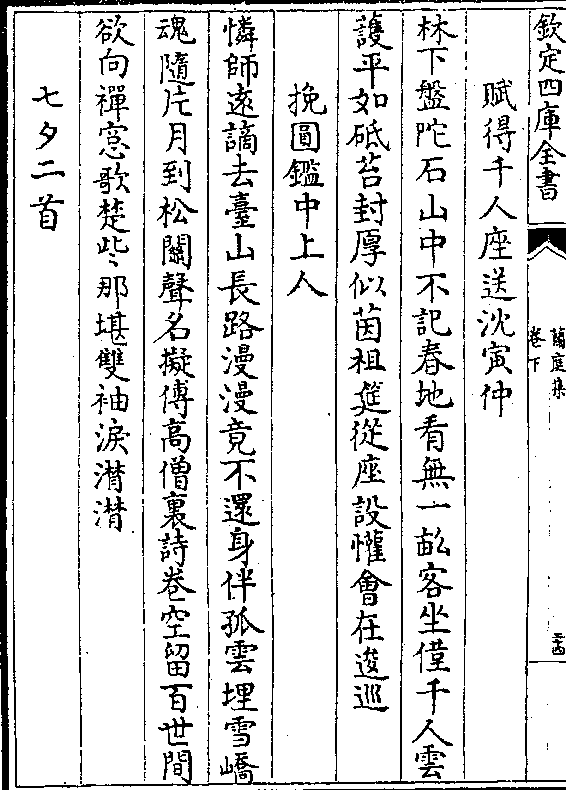 欽定四庫全書
蘭庭集
卷下
二十四
賦得千人座送沈寅仲
林下盤陀石山中不記春地看無一畝客坐僅千人雲
護平如砥苔封厚似茵祖筵從座設懽會在逡巡
挽圓鑑中上人
憐師遠謫去臺山長路漫漫竟不還身伴孤雲埋雪嶠
魂隨片月到松關聲名擬傳高僧裏詩卷空留百世間
欲向禪窓歌楚些那堪雙袖淚潸潸
七夕二首